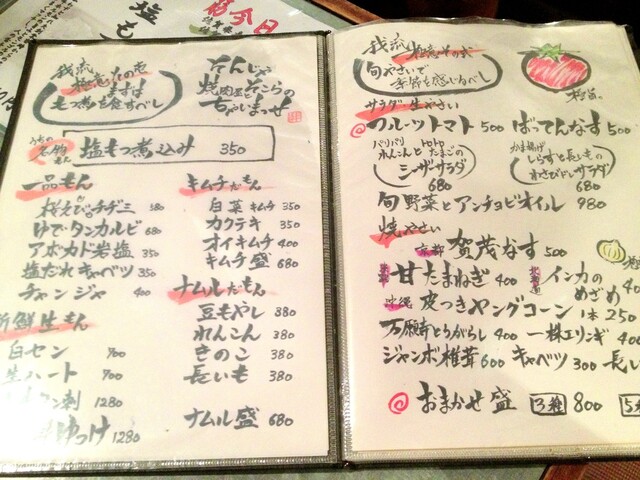 今日
塩も
我流
極意その壱
まずは
もつ煮を食すべし
てんじゃ
焼肉屋
ちゃいまっせ
うちの
名物
もん
塩もつ煮込み 350
一品もん
桜えびのチヂミ 580
ゆでタンカルビ 680
アボカド岩塩 350
塩だれキャベツ 350
チャンジャ 400
新鮮生もん
白セン 700
生ハート 700
刺 1280
ゆっけ 1280
キムチだもん
白菜キムチ 350
カクテキ 350
オイキムチ 400
キムチ盛 680
ナムルだもん
豆もやし 380
れんこん 380
きのこ 380
長いも 380
ナムル盛 680
我流
極意その弐
旬やさいで
季節を感じるべし
サラダ・生やさい
フルーツトマト 500
ばってんなす 500
パリパリ
れんこんと
トロトロ
たまごの
シーザーサラダ
680
かま揚げ
しらすと長いもの
わさびドレサラダ
680
旬野菜とアンチョビオイル 980
焼やさい
京都 賀茂なす 500
甘たまねぎ 400
北海道 インカの
めざめ
沖縄 皮つきヤングコーン 1本 250
万願寺とうがらし 400
一株エリンギ 400
ジャンボ椎茸 600
キャベツ 300
長い
おまかせ盛 3種 800